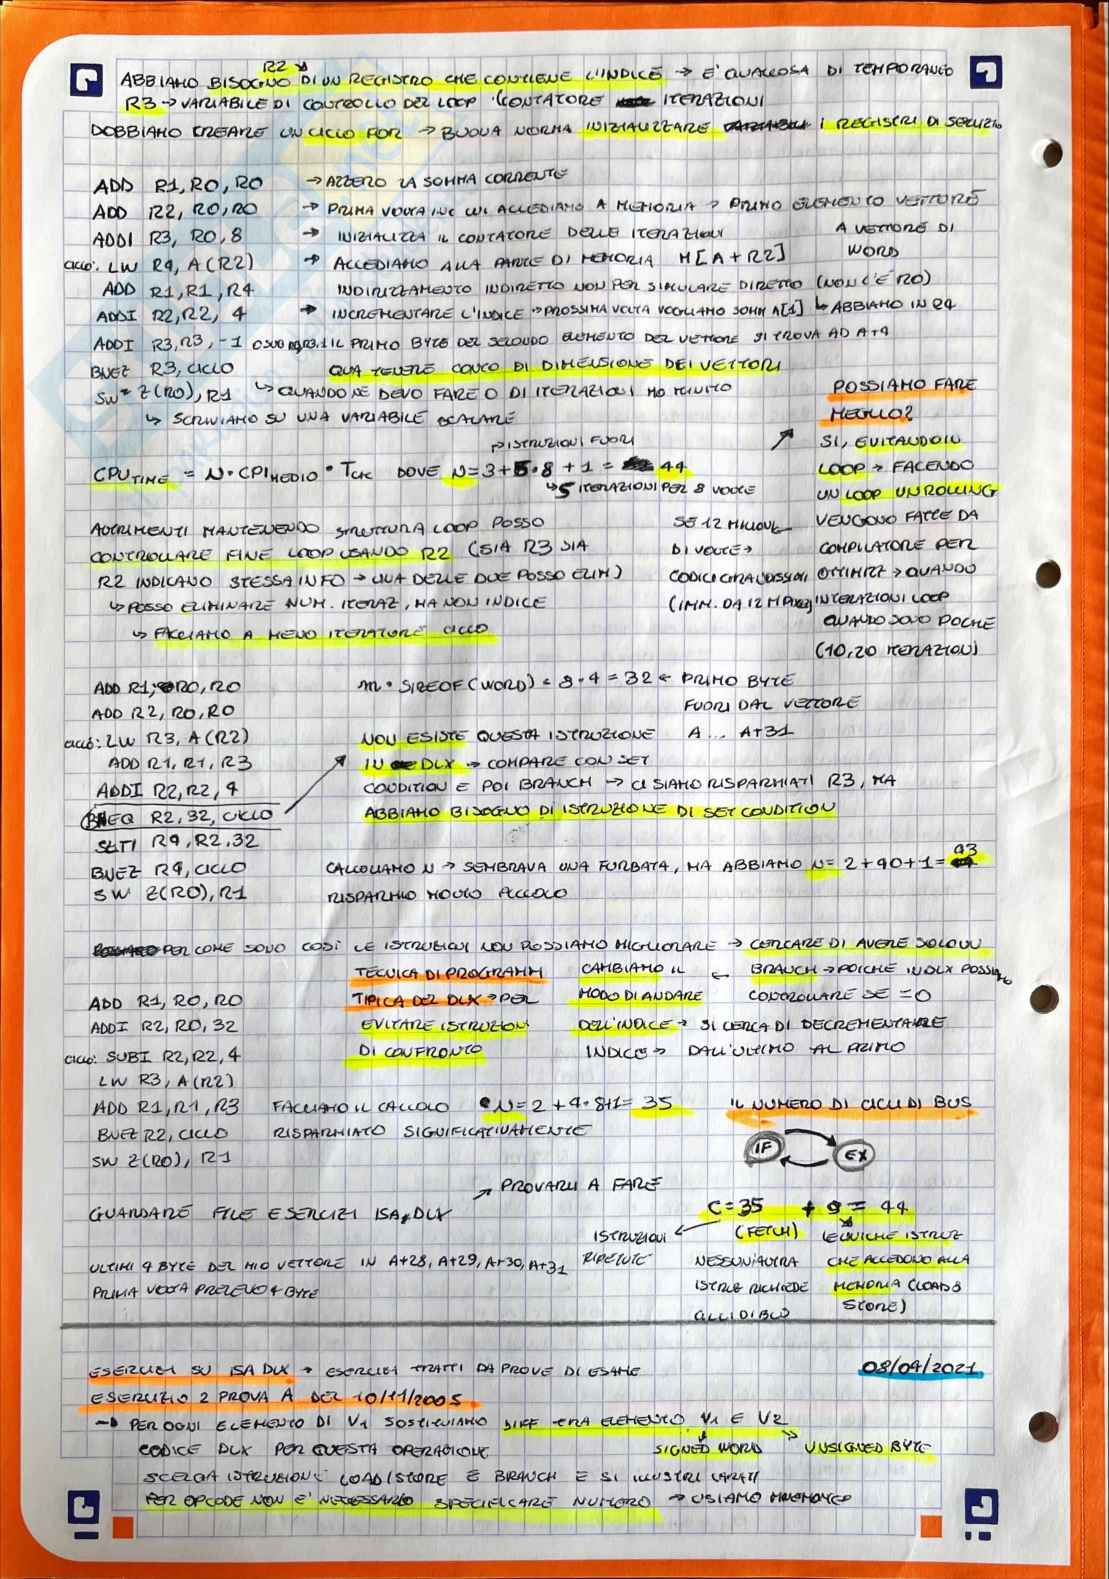 R2
ABBIAMO BISOGNO DI UN REGISTRO CHE CONTIENE L'INDICE → E' QUALCOSA DI TEMPORANEO
R3 → VARIABILE DI CONTROLLO DEL LOOP (CONTATORE ITERAZIONI
DOBBIAMO CREARE UN CICLO FOR → BUONA NORMA INIZIALIZZARE I REGISTRI DI SERVIZIO
ADD R1, R0, R0 → AZZERO LA SOMMA CORRENTE
ADD R2, R0, R0 → PRIMA VOLTA IN CUI ACCEDIAMO A MEMORIA → PRIMO ELEMENTO VETTORE
ADDI R3, R0, 8 → INIZIALIZZA IL CONTATORE DELLE ITERAZIONI
A VETTORE DI
WORD
CICLO: LW R4, A(R2) → ACCEDIAMO ALLA PARTE DI MEMORIA M[A+R2]
ADD R1, R1, R4 INDIRIZZAMENTO INDIRETTO NON PER SIMULARE DIRETTO (NON C'E' R0)
ADDI R2, R2, 4 → INCREMENTARE L'INDICE → PROSSIMA VOLTA VOGLIAMO SOMM A[1] ↳ ABBIAMO IN R4
ADDI R3, R3, -1 IL PRIMO BYTE DEL SECONDO ELEMENTO DEL VETTORE SI TROVA AD A+4
BNEZ R3, CICLO QUA TENERE CONTO DI DIMENSIONE DEI VETTORI
SW Z(R0), R1 ↳ QUANDO NE DEVO FARE 0 DI ITERAZIONI HO FINITO
↳ SCRIVIAMO SU UNA VARIABILE SCALARE
POSSIAMO FARE
MEGLIO?
SI, EVITANDO IL
LOOP → FACENDO
UN LOOP UNROLLING
VENGONO FATTE DA
COMPILATORE PER
OTTIMIZZ → QUANDO
ITERAZIONI LOOP
QUANDO SONO POCHE
(10, 20 ITERAZIONI)
↱ ISTRUZIONI FUORI
CPU TIME = N · CPI MEDIO · TCK DOVE N = 3 + 5 · 8 + 1 = 44
↳ 5 ITERAZIONI PER 8 VOLTE
ALTRIMENTI MANTENENDO STRUTTURA LOOP POSSO
CONTROLLARE FINE LOOP USANDO R2 (SIA R3 SIA
R2 INDICANO STESSA INFO → UNA DELLE DUE POSSO ELIM)
↳ POSSO ELIMINARE NUM. ITERAZ, MA NON INDICE
↳ FACCIAMO A MENO ITERATORE CICLO
SE 12 MILIONI
DI VOLTE →
ADD R1, R0, R0
ADD R2, R0, R0
CICLO: LW R3, A(R2)
ADD R1, R1, R3
ADDI R2, R2, 4
BNEQ R2, 32, CICLO
SLTI R4, R2, 32
BNEZ R4, CICLO
SW Z(R0), R1
m · SIZEOF(WORD) = 8 · 4 = 32 ← PRIMO BYTE
FUORI DAL VETTORE
A... A+31
NON ESISTE QUESTA ISTRUZIONE
IN DLX → COMPARE CON SET
CONDITION E POI BRANCH → CI SIAMO RISPARMIATI R3, MA
ABBIAMO BISOGNO DI ISTRUZIONE DI SET CONDITION
CALCOLIAMO N → SEMBRAVA UNA FURBATA, MA ABBIAMO N = 2 + 40 + 1 = 43
RISPARMIO MOLTO PICCOLO
PER COME SONO COSÌ LE ISTRUZIONI NON POSSIAMO MIGLIORARE → CERCARE DI AVERE SOLO UN
BRANCH → POICHE IN DLX POSSIAMO
CONTROLLARE SE = 0
← CAMBIAMO IL
MODO DI ANDARE
DELL'INDICE → SI CERCA DI DECREMENTARE
INDICE → DALL'ULTIMO AL PRIMO
TECNICA DI PROGRAMM
TIPICA DEL DLX → PER
EVITARE ISTRUZIONI
DI CONFRONTO
ADD R1, R0, R0
ADDI R2, R0, 32
CICLO: SUBI R2, R2, 4
LW R3, A(R2)
ADD R1, R1, R3 FACCIAMO IL CALCOLO N = 2 + 4 · 8 + 1 = 35
BNEZ R2, CICLO RISPARMIATO SIGNIFICATIVAMENTE
SW Z(R0), R1
IL NUMERO DI CICLI DI BUS
IF EX
→ PROVARLI A FARE
GUARDARE FILE ESERCIZI ISA DLX
C = 35 + 9 = 44
(FETCH)
ISTRUZIONI
RIPETUTE
NESSUN'ALTRA
ISTRUZ RICHIEDE
CICLI DI BUS
LE UNICHE ISTRUZ
CHE ACCEDONO ALLA
MEMORIA (LOAD E
STORE)
ULTIMI 4 BYTE DEL MIO VETTORE IN A+28, A+29, A+30, A+31
PRIMA VOLTA PRELEVO 4 BYTE
ESERCIZI SU ISA DLX → ESERCIZI TRATTI DA PROVE DI ESAME 08/04/2021
ESERCIZIO 2 PROVA A DEL 10/11/2005
→ PER OGNI ELEMENTO DI V1 SOSTITUIAMO DIFF TRA ELEMENTO V1 E V2
CODICE DLX PER QUESTA OPERAZIONE SIGNED WORD UNSIGNED BYTE
SCELTA ISTRUZIONI LOAD/STORE E BRANCH E SI ILLUSTRI
PER OPCODE NON E' NECESSARIO SPECIFICARE NUMERO → USIAMO MNEMONICO